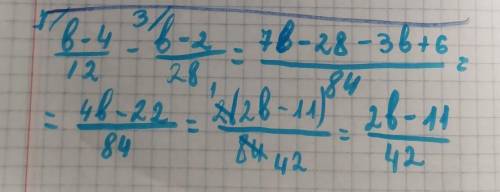 7/ (в-4)/12 - 3/ (в-2)/28 = (7в-28-3в+6)/84 =
= (4в-22)/84 = 2(2в-11)/84 42 = (2в-11)/42